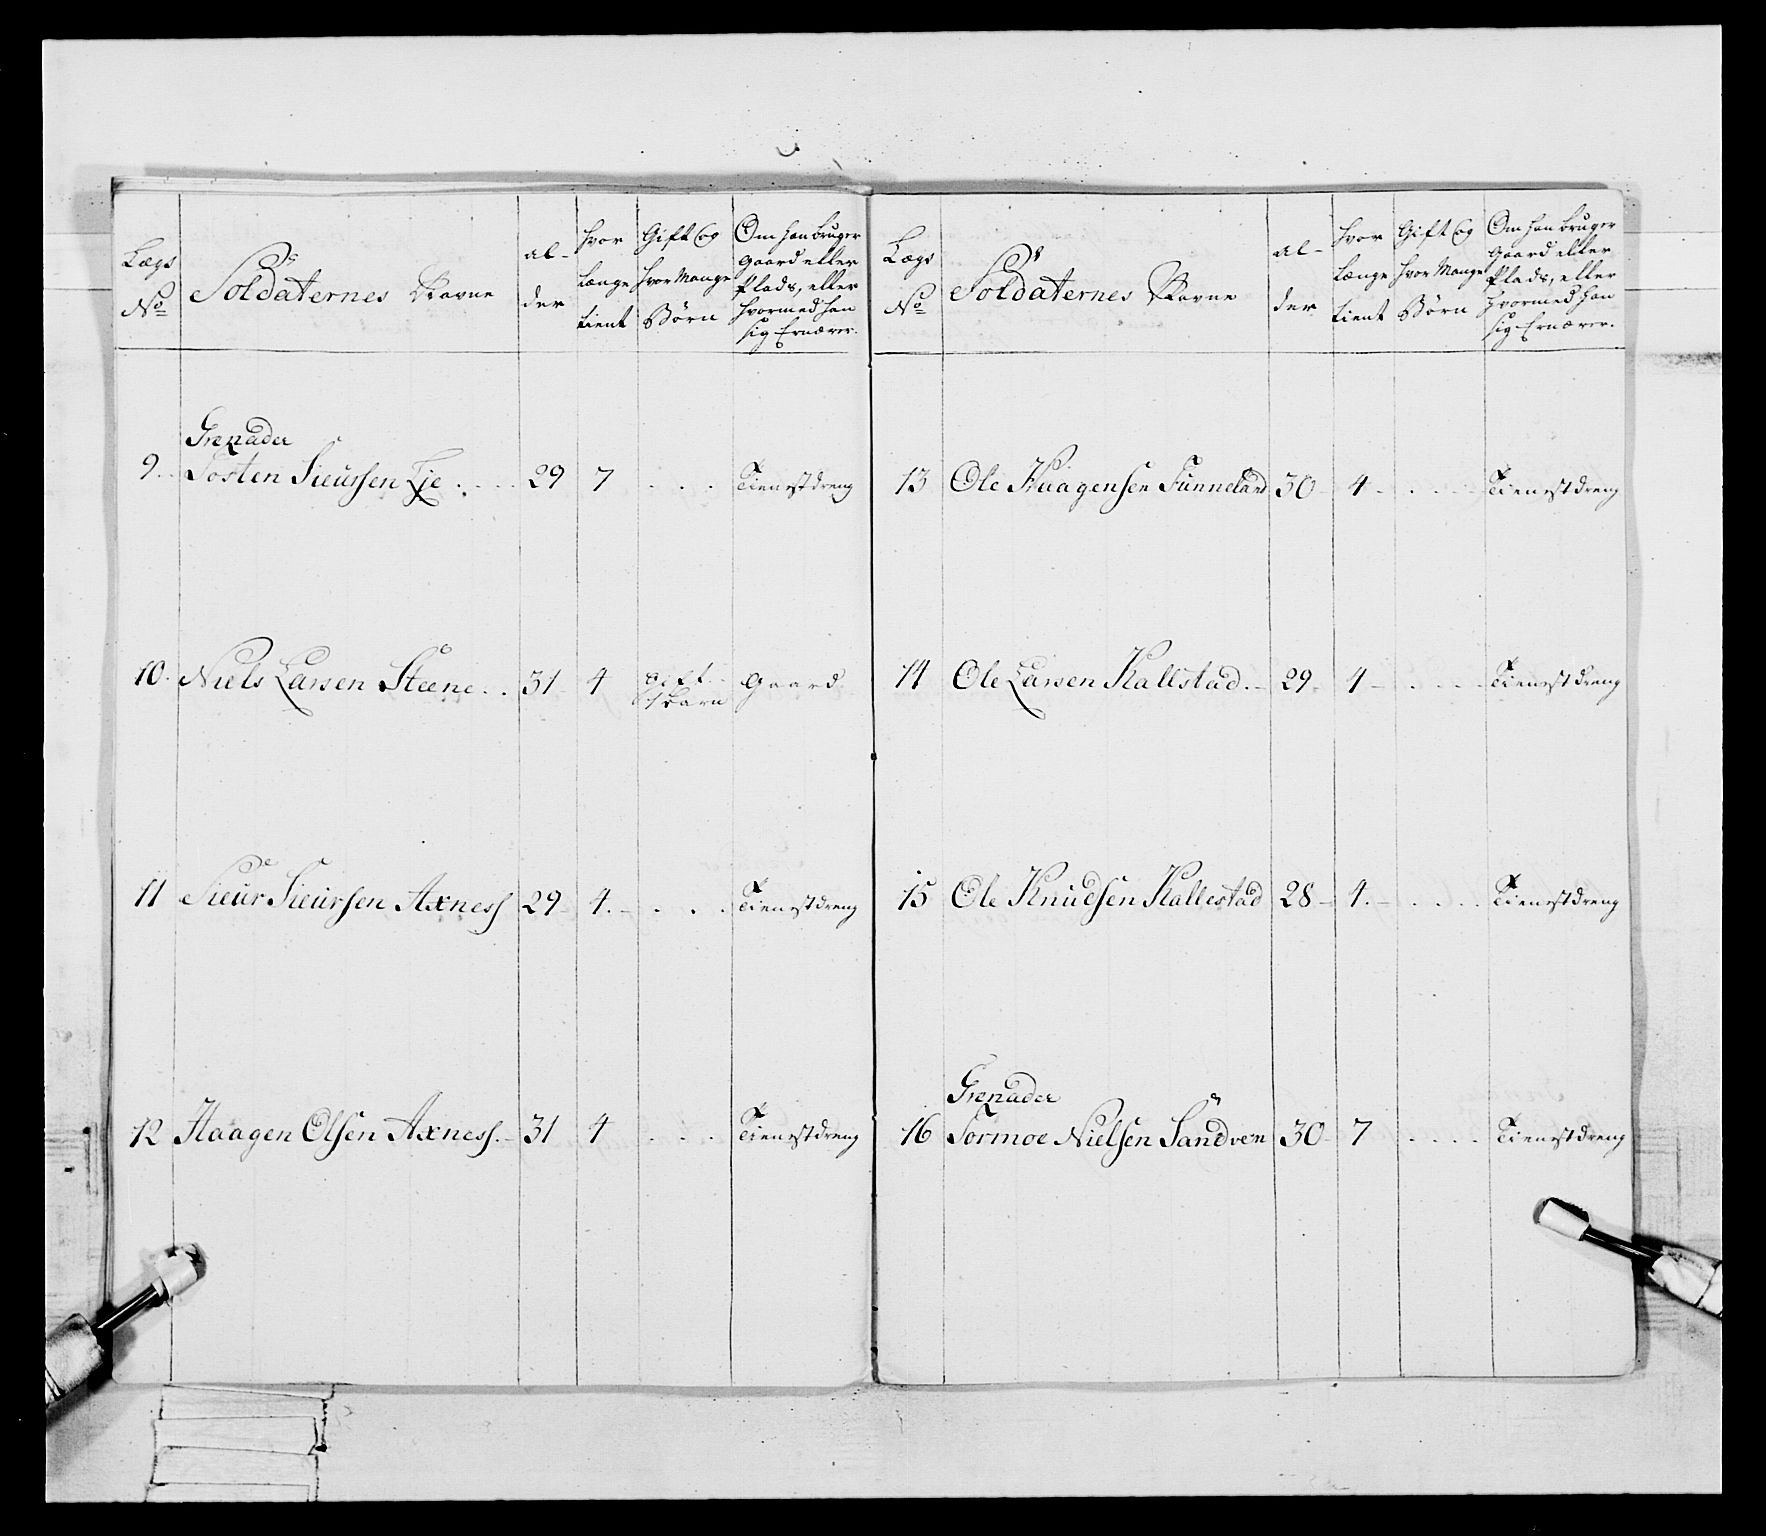 Lægs No Soldaternes Navne al-der hvor længe tient Gift og hvor Mange Börn Om han bruger gaard eller Plads, eller hvormed han sig Ernærer.
Grenader
9. Tosten Sieursen Lie 29 7 Tienestdreng
10. Niels Larsen Steene 31 4 gift 1 barn gaard
11 Sieur Sieursen Axness 29 4. Tienestdreng
12 Haagen Olsen Axness. 31 4 Tienestdreng
Lægs No Soldaternes Navne al-der hvor længe tient Gift og hvor Mange Börn Om han bruger Gaard eller Plads, eller hvormed han sig Ernærer.
13 Ole Haagensen Tunneland 30 4 Tienestdreng
14 Ole Larsen Kallstad. 29 4 Tienestdreng
15 Ole Knudsen Kallestad 28 4. Tienestdreng
Grenader
16 Tormoe Nielsen Sandven 30 7 Tienestdreng